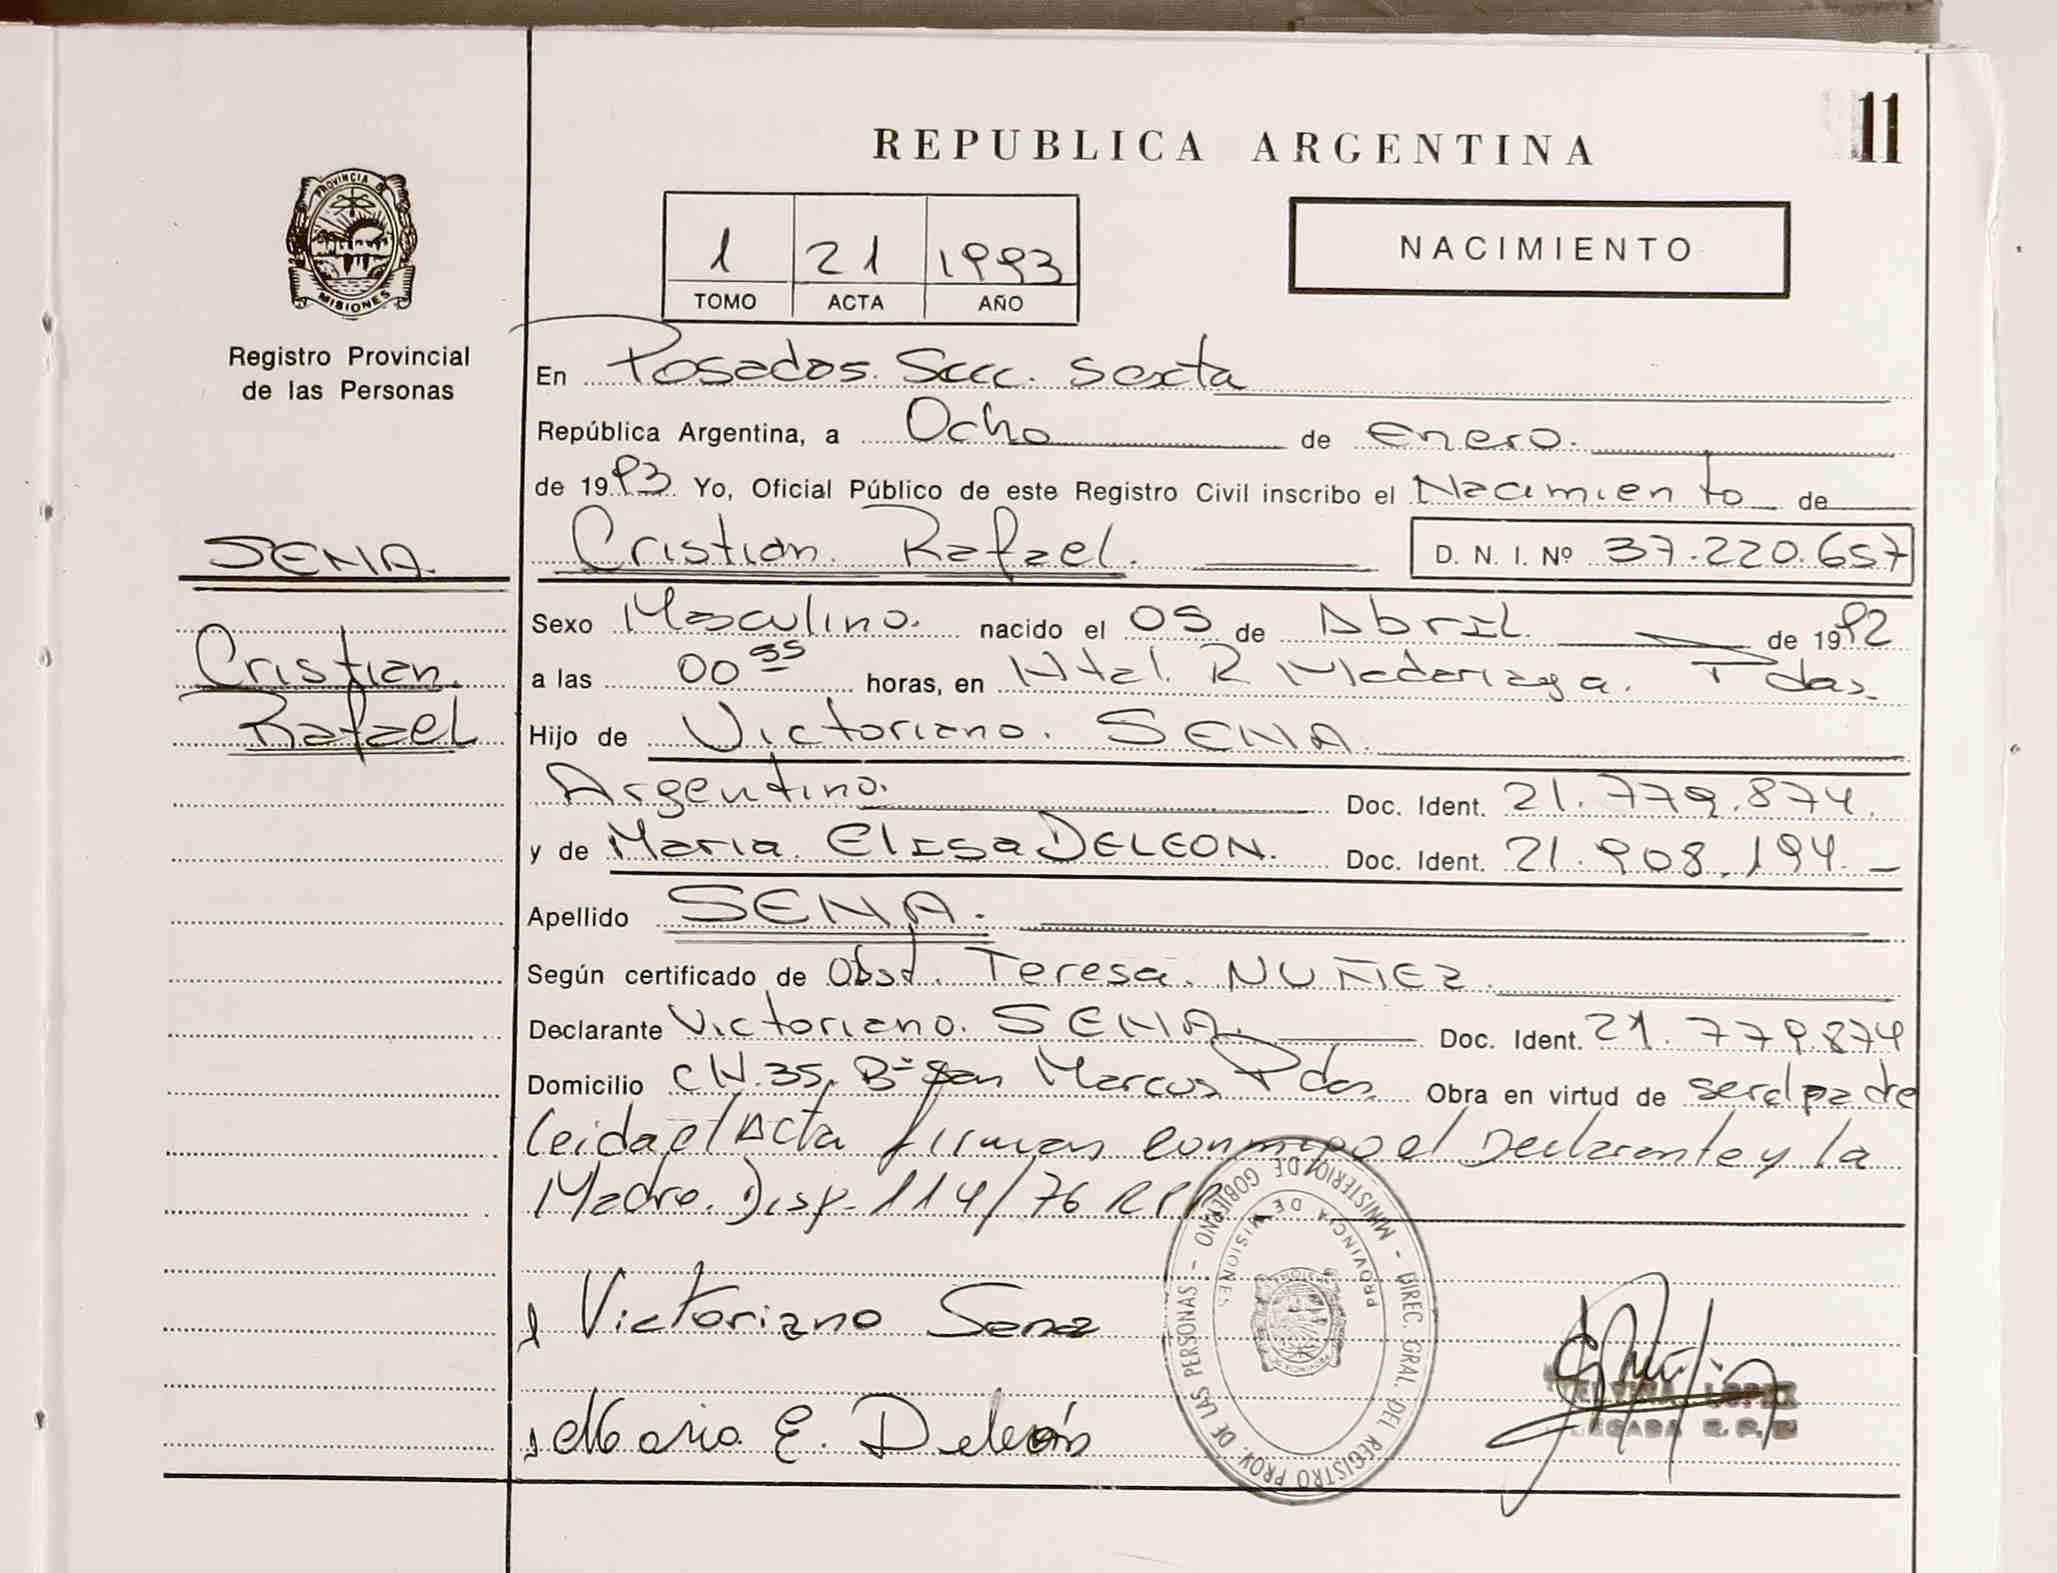 11
REPUBLICA ARGENTINA
PROVINCIA DE
MISIONES
1 21 1993
TOMO ACTA AÑO
NACIMIENTO
Registro Provincial
de las Personas
En Posadas. Secc. Sexta
República Argentina, a Ocho de Enero.
de 1993 Yo, Oficial Público de este Registro Civil inscribo el Nacimiento de
SENA.
Cristian Rafael. D. N. I. Nº 37.220.657
Cristian
Rafael
Sexo Masculino. nacido el 05 de Abril de 1992
a las 00 35 horas, en Htal. R Madariaga. Pdas.
Hijo de Victoriano. SENA.
Argentino. Doc. Ident. 21.779.874.
y de Maria Elisa DELEON. Doc. Ident. 21.908.194.-
Apellido SENA.
Según certificado de Obst. Teresa. NUÑEZ.
Declarante Victoriano. SENA. Doc. Ident. 21.779.874
Domicilio CH.35. Bº San Marcos Pdas. Obra en virtud de ser el padre
leida el Acta firman conmigo el Declarante y la
Madre. Disp. 114/76 RPP
Victoriano Sena
Maria E. Deleón
DIREC. GRAL. DEL REGISTRO PROV. DE LAS PERSONAS - MINISTERIO DE GOBIERNO -
PROVINCIA DE MISIONES
LOPEZ